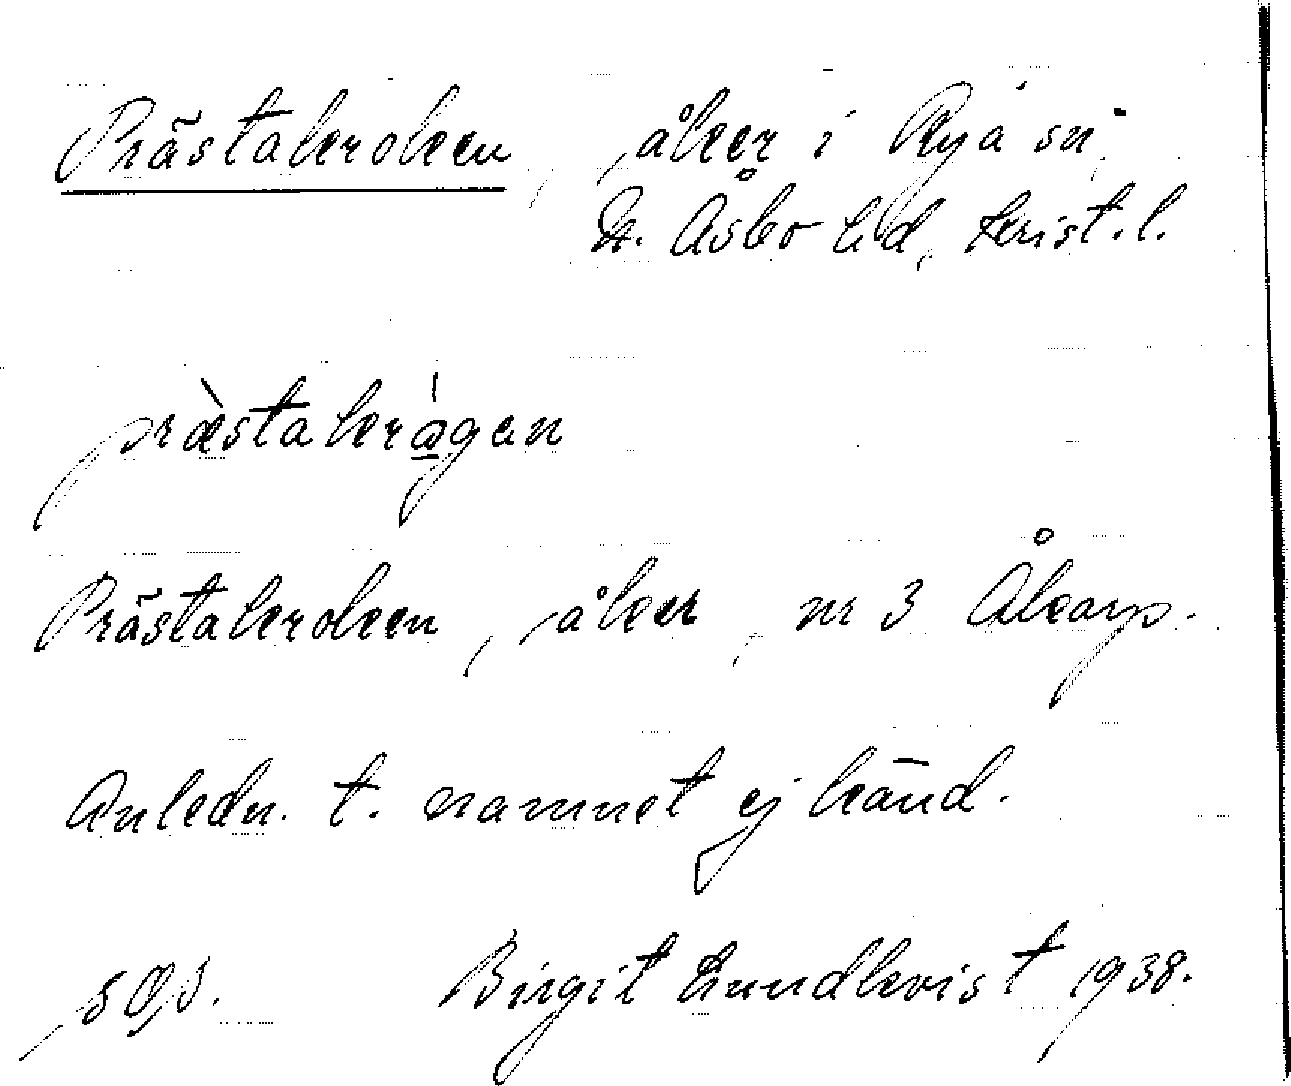 Prästakroken, åker i Rya sn,
N. Åsbo hd, Krist. l.
præstakrågen
Prästakroken, åker, nr 3 Åkarp.
Anledn. t. namnet ej känd.
Birgit Lundkvist 1938.